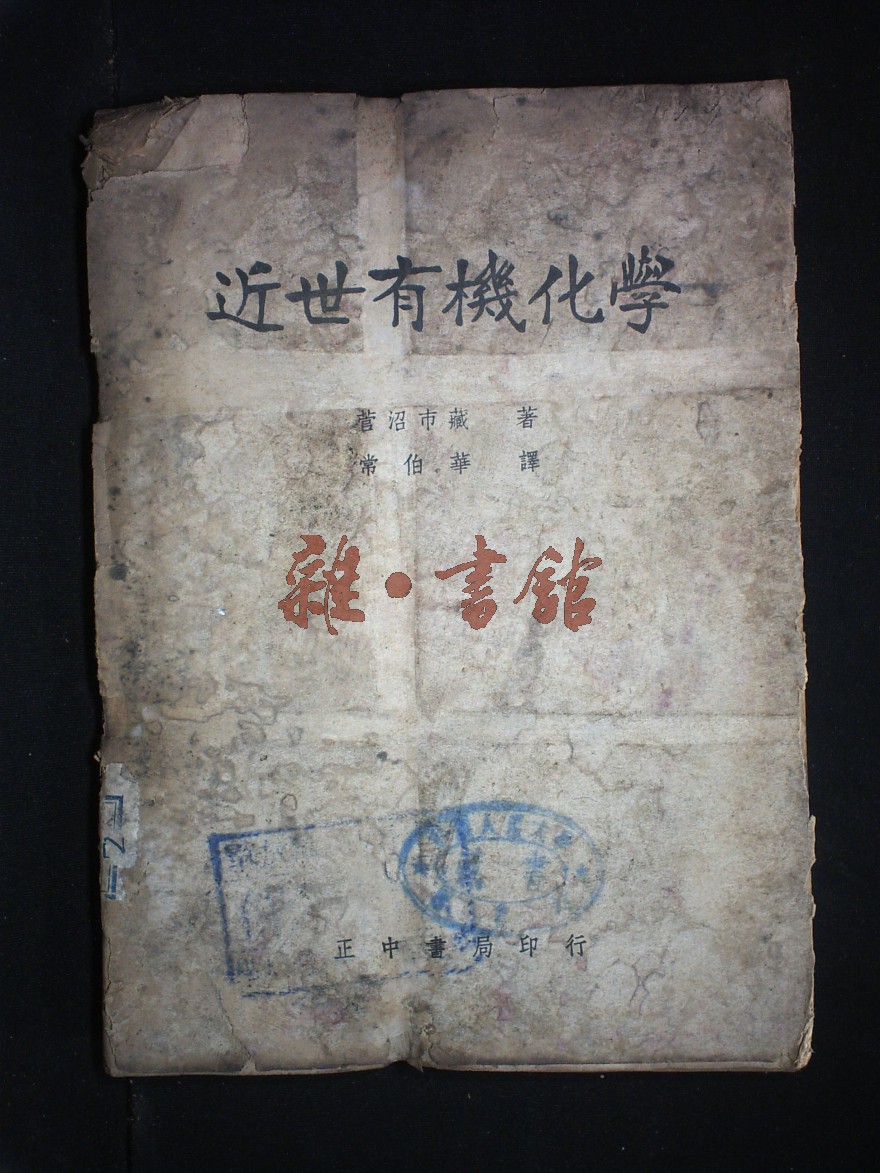 近世有機化學
菅沼市藏 著
常伯華 譯
雜·書館
正中書局印行